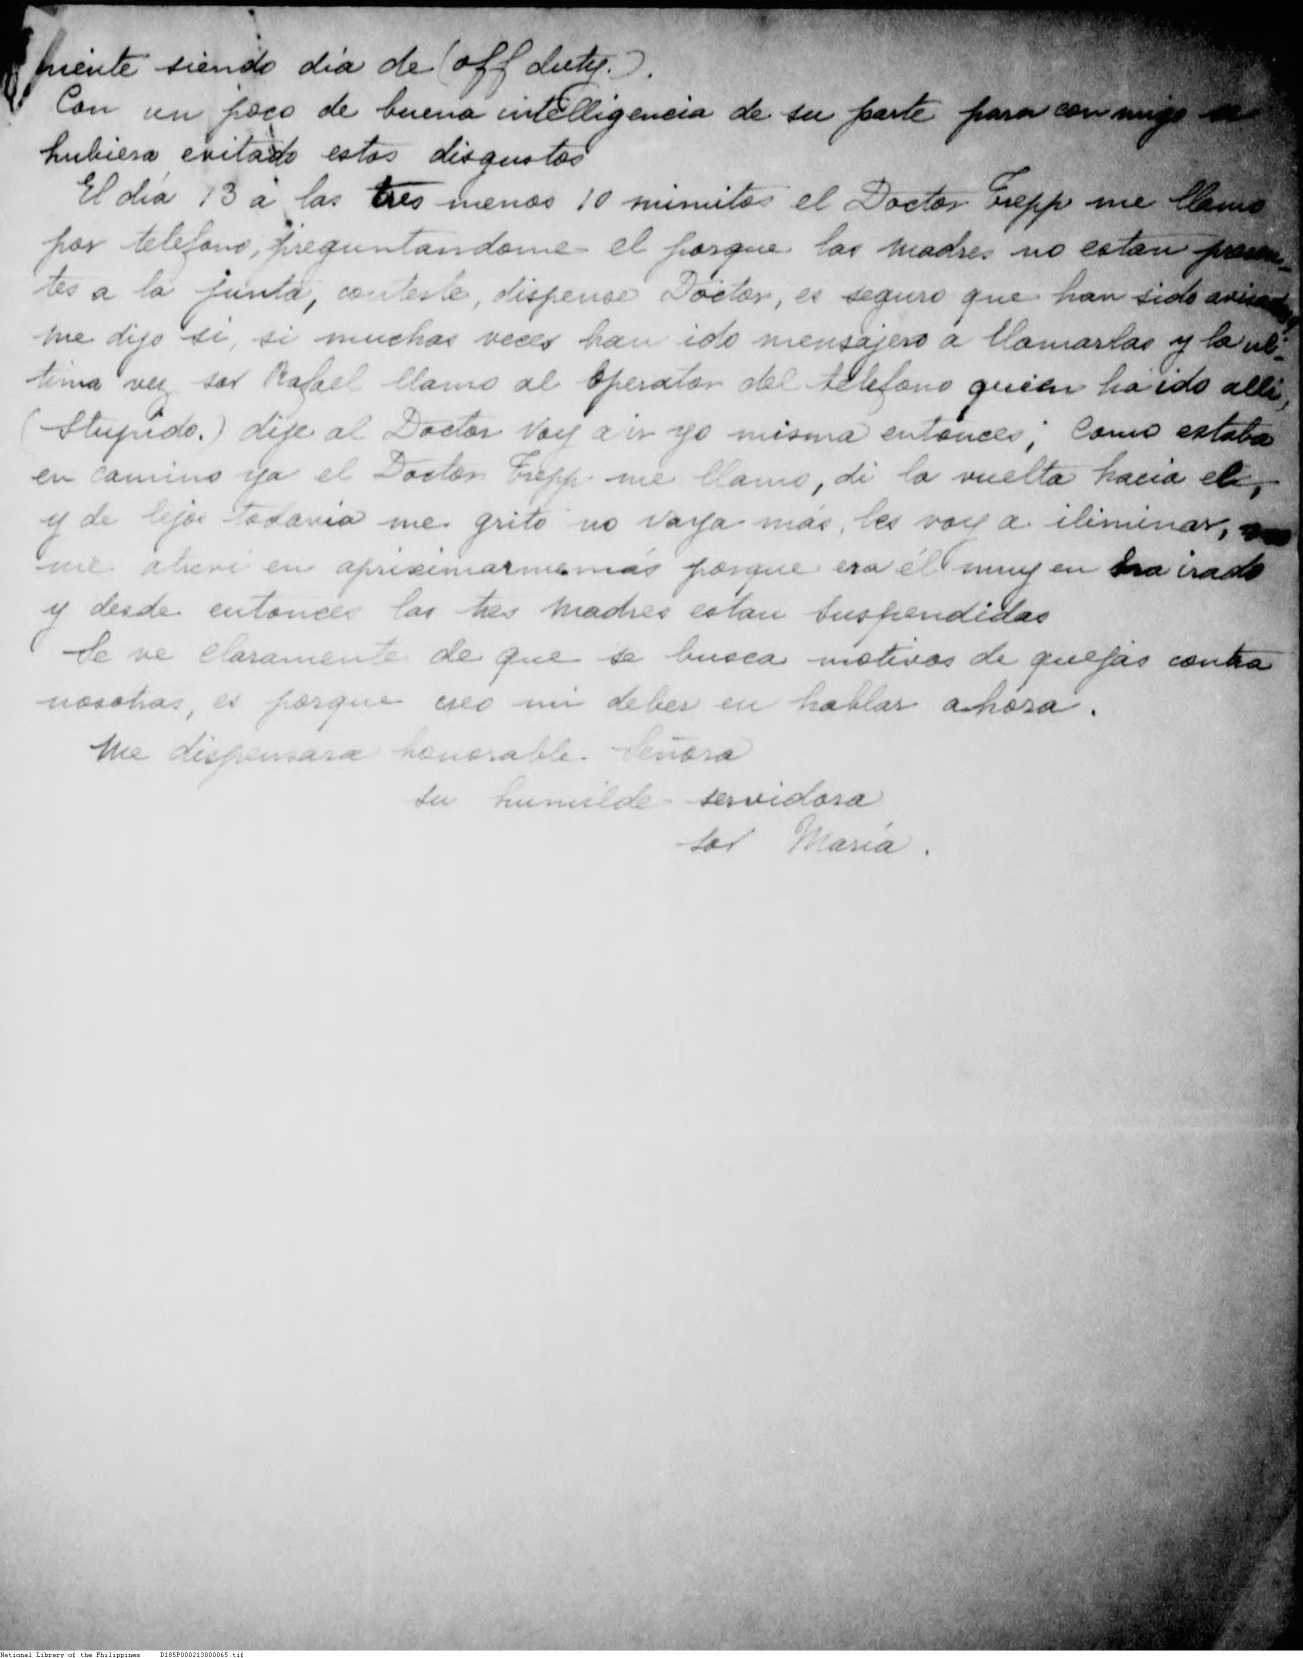 mente siendo día de (off duty.).
Con un poco de buena intelligencia de su parte para con migo se
hubiera evitado estos disgustos
El día 13 a las tres menos 10 minutos el Doctor Trepp me llamo
por telefono, preguntandome el porque las Madres no estan presen-
tes a la junta, conteste, dispense Doctor, es seguro que han sido avisadas
me dijo si, si muchas veces han ido mensajero a llamarlas y la ul-
tima vez sor Rafael llamo al Operator del telefono quien ha ido alli,
(Stupido.) dije al Doctor Voy a ir yo misma entonces; Como estaba
en camino ya el Doctor Trepp me llamo, di la vuelta hacia el,
y de lejos todavia me grito no vaya más, les voy a iliminar,
me atrevi en aprisimarme más porque era él muy en
y desde entonces las tres Madres estan Suspendidas
Se ve claramente de que se busca motivos de quejas contra
nosotras, es porque creo mi deber en hablar ahora.
Me dispensara honorable Señora
su humilde servidora
Sor María.
National Library of the Philippines D185P000213800065.tif